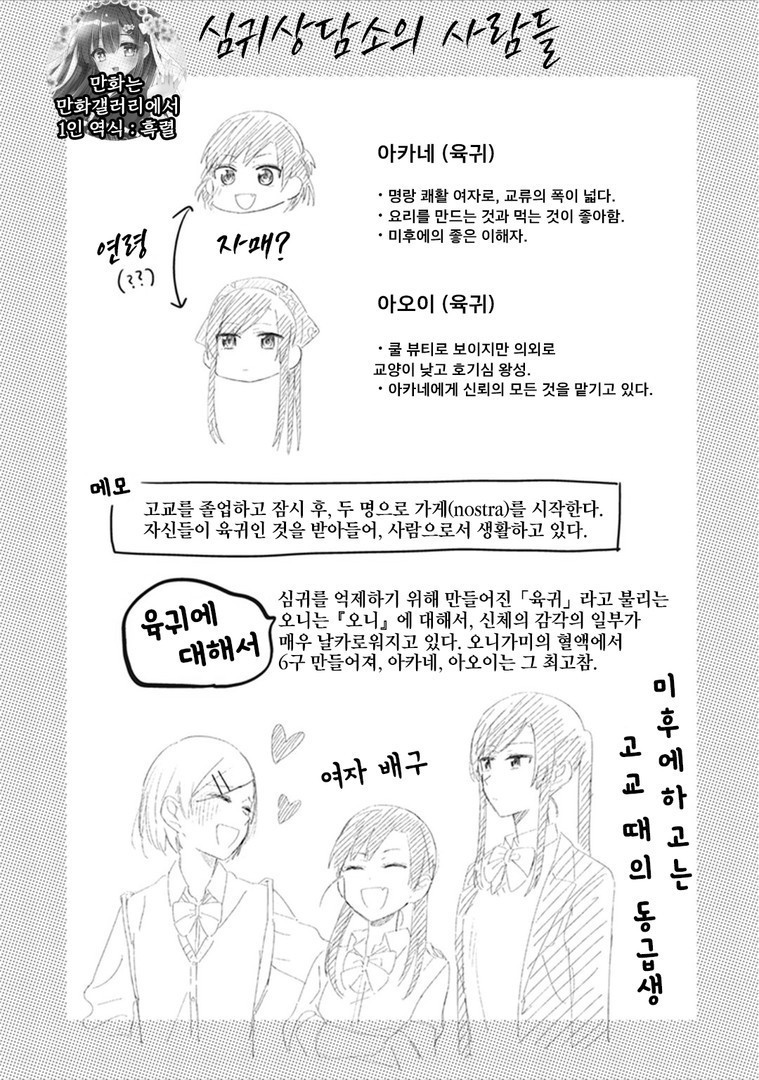 심귀상담소의 사람들
만화는
만화갤러리에서
1인 역식 : 흑렬
아카네 (육귀)
・명랑 쾌활 여자로, 교류의 폭이 넓다.
・요리를 만드는 것과 먹는 것이 좋아함.
・미후에의 좋은 이해자.
연령
(??)
자매?
아오이 (육귀)
・쿨 뷰티로 보이지만 의외로
교양이 낮고 호기심 왕성.
・아카네에게 신뢰의 모든 것을 맡기고 있다.
메모
고교를 졸업하고 잠시 후, 두 명으로 가게(nostra)를 시작한다.
자신들이 육귀인 것을 받아들어, 사람으로서 생활하고 있다.
육귀에
대해서
심귀를 억제하기 위해 만들어진「육귀」라고 불리는
오니는『오니』에 대해서, 신체의 감각의 일부가
매우 날카로워지고 있다. 오니가미의 혈액에서
6구 만들어져, 아카네, 아오이는 그 최고참.
여자 배구
미후에하고는
고교 때의 동급생